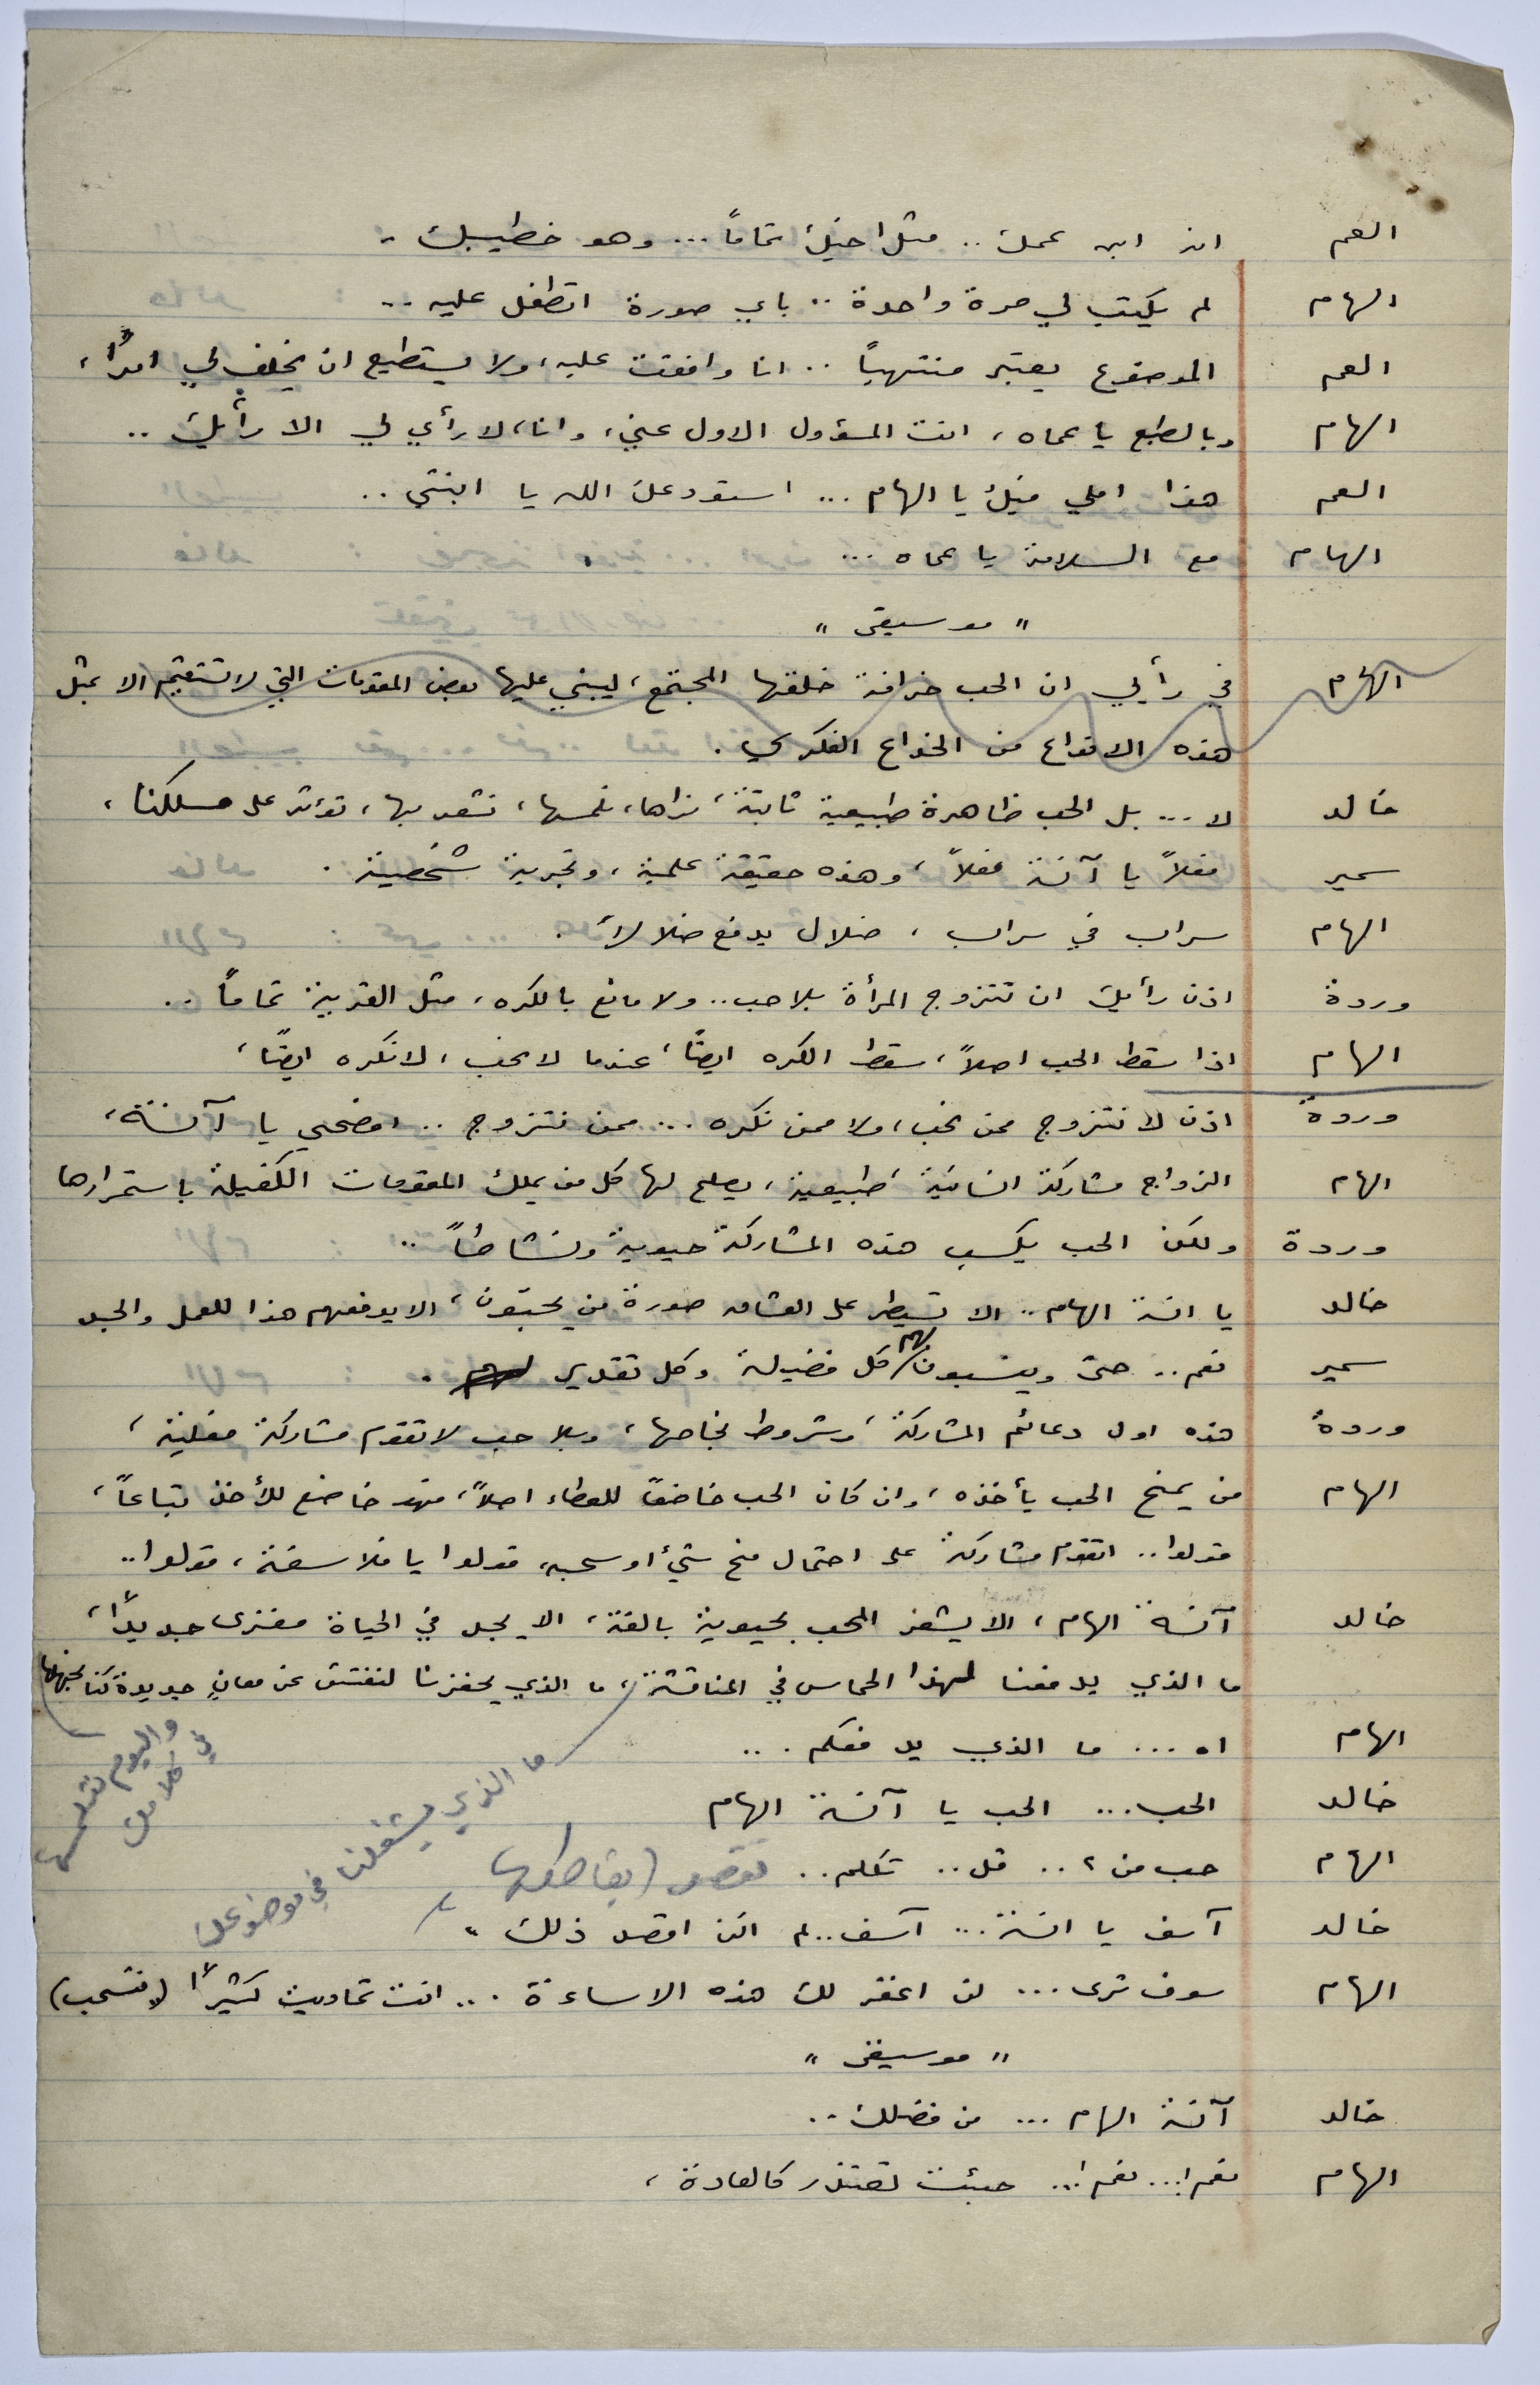 العم انه ابن عمك .. مثل اخيك تماماً ... وهو خطيبك ..
الهام لم يكتب لي مرة واحدة .. باي صورة اتطفل عليه ..
العم الموضوع يعتبر منتهياً .. انا وافقت عليه، ولا يستطيع ان يخلف لي امراً،
الهام وبالطبع يا عماه، انت المسؤول الاول عني، وانا، لا رأي لي الا رأيك ..
العم هذا املي فيك يا الهام ... استودعك الله يا ابنتي ..
الهام مع السلامة يا عماه ...
" موسيقى "
الهام في رأيي ان الحب خرافة خلقها المجتمع، ليبني عليها بعض المقومات التي لا تستقيم الا بمثل
هذه الانواع من الخداع الفكري .
خالد لا ... بل الحب ظاهرة طبيعية ثابتة، نراها، نلمسها، نشعر بها، تؤثر على مسلكنا،
سمير فعلاً يا آنسة فعلاً، وهذه حقيقة علمية، وتجربة شخصية .
الهام سراب في سراب، ضلال يدفع ضلالاً .
وردة اذن رأيك ان تتزوج المرأة بلا حب .. ولا مانع بالكره، مثل القريبة تماماً ..
الهام اذا سقط الحب اصلاً، سقط الكره ايضاً، عندما لا نحب، لا نكره ايضاً،
وردة اذن لا نتزوج ممن نحب، ولا ممن نكره ... ممن نتزوج .. افصحي يا آنسة،
الهام الزواج مشاركة انسانية طبيعية، يصلح لها كل من يملك المقومات الكفيلة باستمرارها
وردة ولكن الحب يكسب هذه المشاركة حيوية ونشاطاً ..
خالد يا انسة الهام .. الا تسيطر على العشاق صورة من يحبون، الا يدفعهم هذا للعمل والجد
سمير نعم .. حتى وينسبون لهم كل فضيلة وكل تقدير .
وردة هذه اول دعائم المشاركة، وشروط نجاحها، وبلا حب لا تقوم مشاركة فعلية،
الهام من يمنح الحب يأخذه، وان كان الحب خاضعاً للعطاء اصلاً، فهو خاضع للأخذ تباعاً،
قولوا .. اتقوم مشاركة على احتمال منح شيء او سحبه، قولوا يا فلاسفة، قولوا ..
خالد آنسة الهام، الا يشعر المحب بحيوية بالغة، الا يجد في الحياة مغزى جديداً،
ما الذي يدفعنا لهذا الحماس في المناقشة، ما الذي يحفزنا لنفتش عن معانٍ جديدة كنا نجهلها
واليوم
في
ما الذي يشغلنا في موضوعك
الهام اه ... ما الذي يدفعكم ...
خالد الحب ... الحب يا آنسة الهام
الهام حب من ؟ .. قل .. تكلم .. تقصد (يقاطعها)
خالد آسف يا انسة ... آسف .. لم اكن اقصد ذلك ..
الهام سوف ترى ... لن اغفر لك هذه الاساءة ... انت تماديت كثيراً (وتنسحب)
" موسيقى "
خالد آنسة الهام ... من فضلك ..
الهام نعم !... نعم !... جئت تعتذر كالعادة،